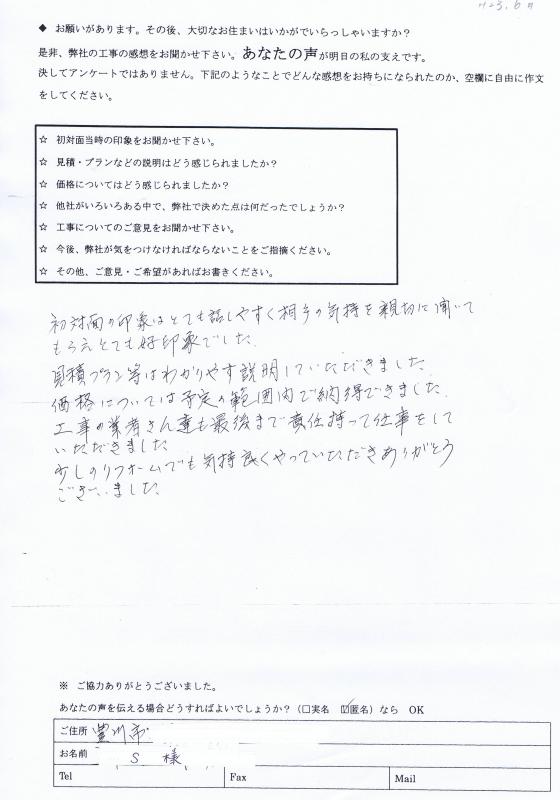 H23.6月
◆ お願いがあります。その後、大切なお住まいはいかがでいらっしゃいますか？
是非、弊社の工事の感想をお聞かせ下さい。あなたの声が明日の私の支えです。
決してアンケートではありません。下記のようなことでどんな感想をお持ちになられたのか、空欄に自由に作文
をしてください。
☆ 初対面当時の印象をお聞かせ下さい。
☆ 見積・プランなどの説明はどう感じられましたか？
☆ 価格についてはどう感じられましたか？
☆ 他社がいろいろある中で、弊社で決めた点は何だったでしょうか？
☆ 工事についてのご意見をお聞かせ下さい。
☆ 今後、弊社が気をつけなければならないことをご指摘ください。
☆ その他、ご意見・ご希望があればお書きください。
初対面の印象はとても話しやすく相手の気持を親切に聞いて
もらえとても好印象でした。
見積プラン等はわかりやす説明していただきました。
価格については予定の範囲内で納得できました。
工事の業者さん達も最後まで責任持って仕事をして
いただきました。
少しのリフォームでも気持良くやっていただきありがとう
ございました。
※ ご協力ありがとうございました。
あなたの声を伝える場合どうすればよいでしょうか？（□実名 ☑匿名）なら OK
ご住所 豊川市
お名前 S 様
Tel Fax Mail